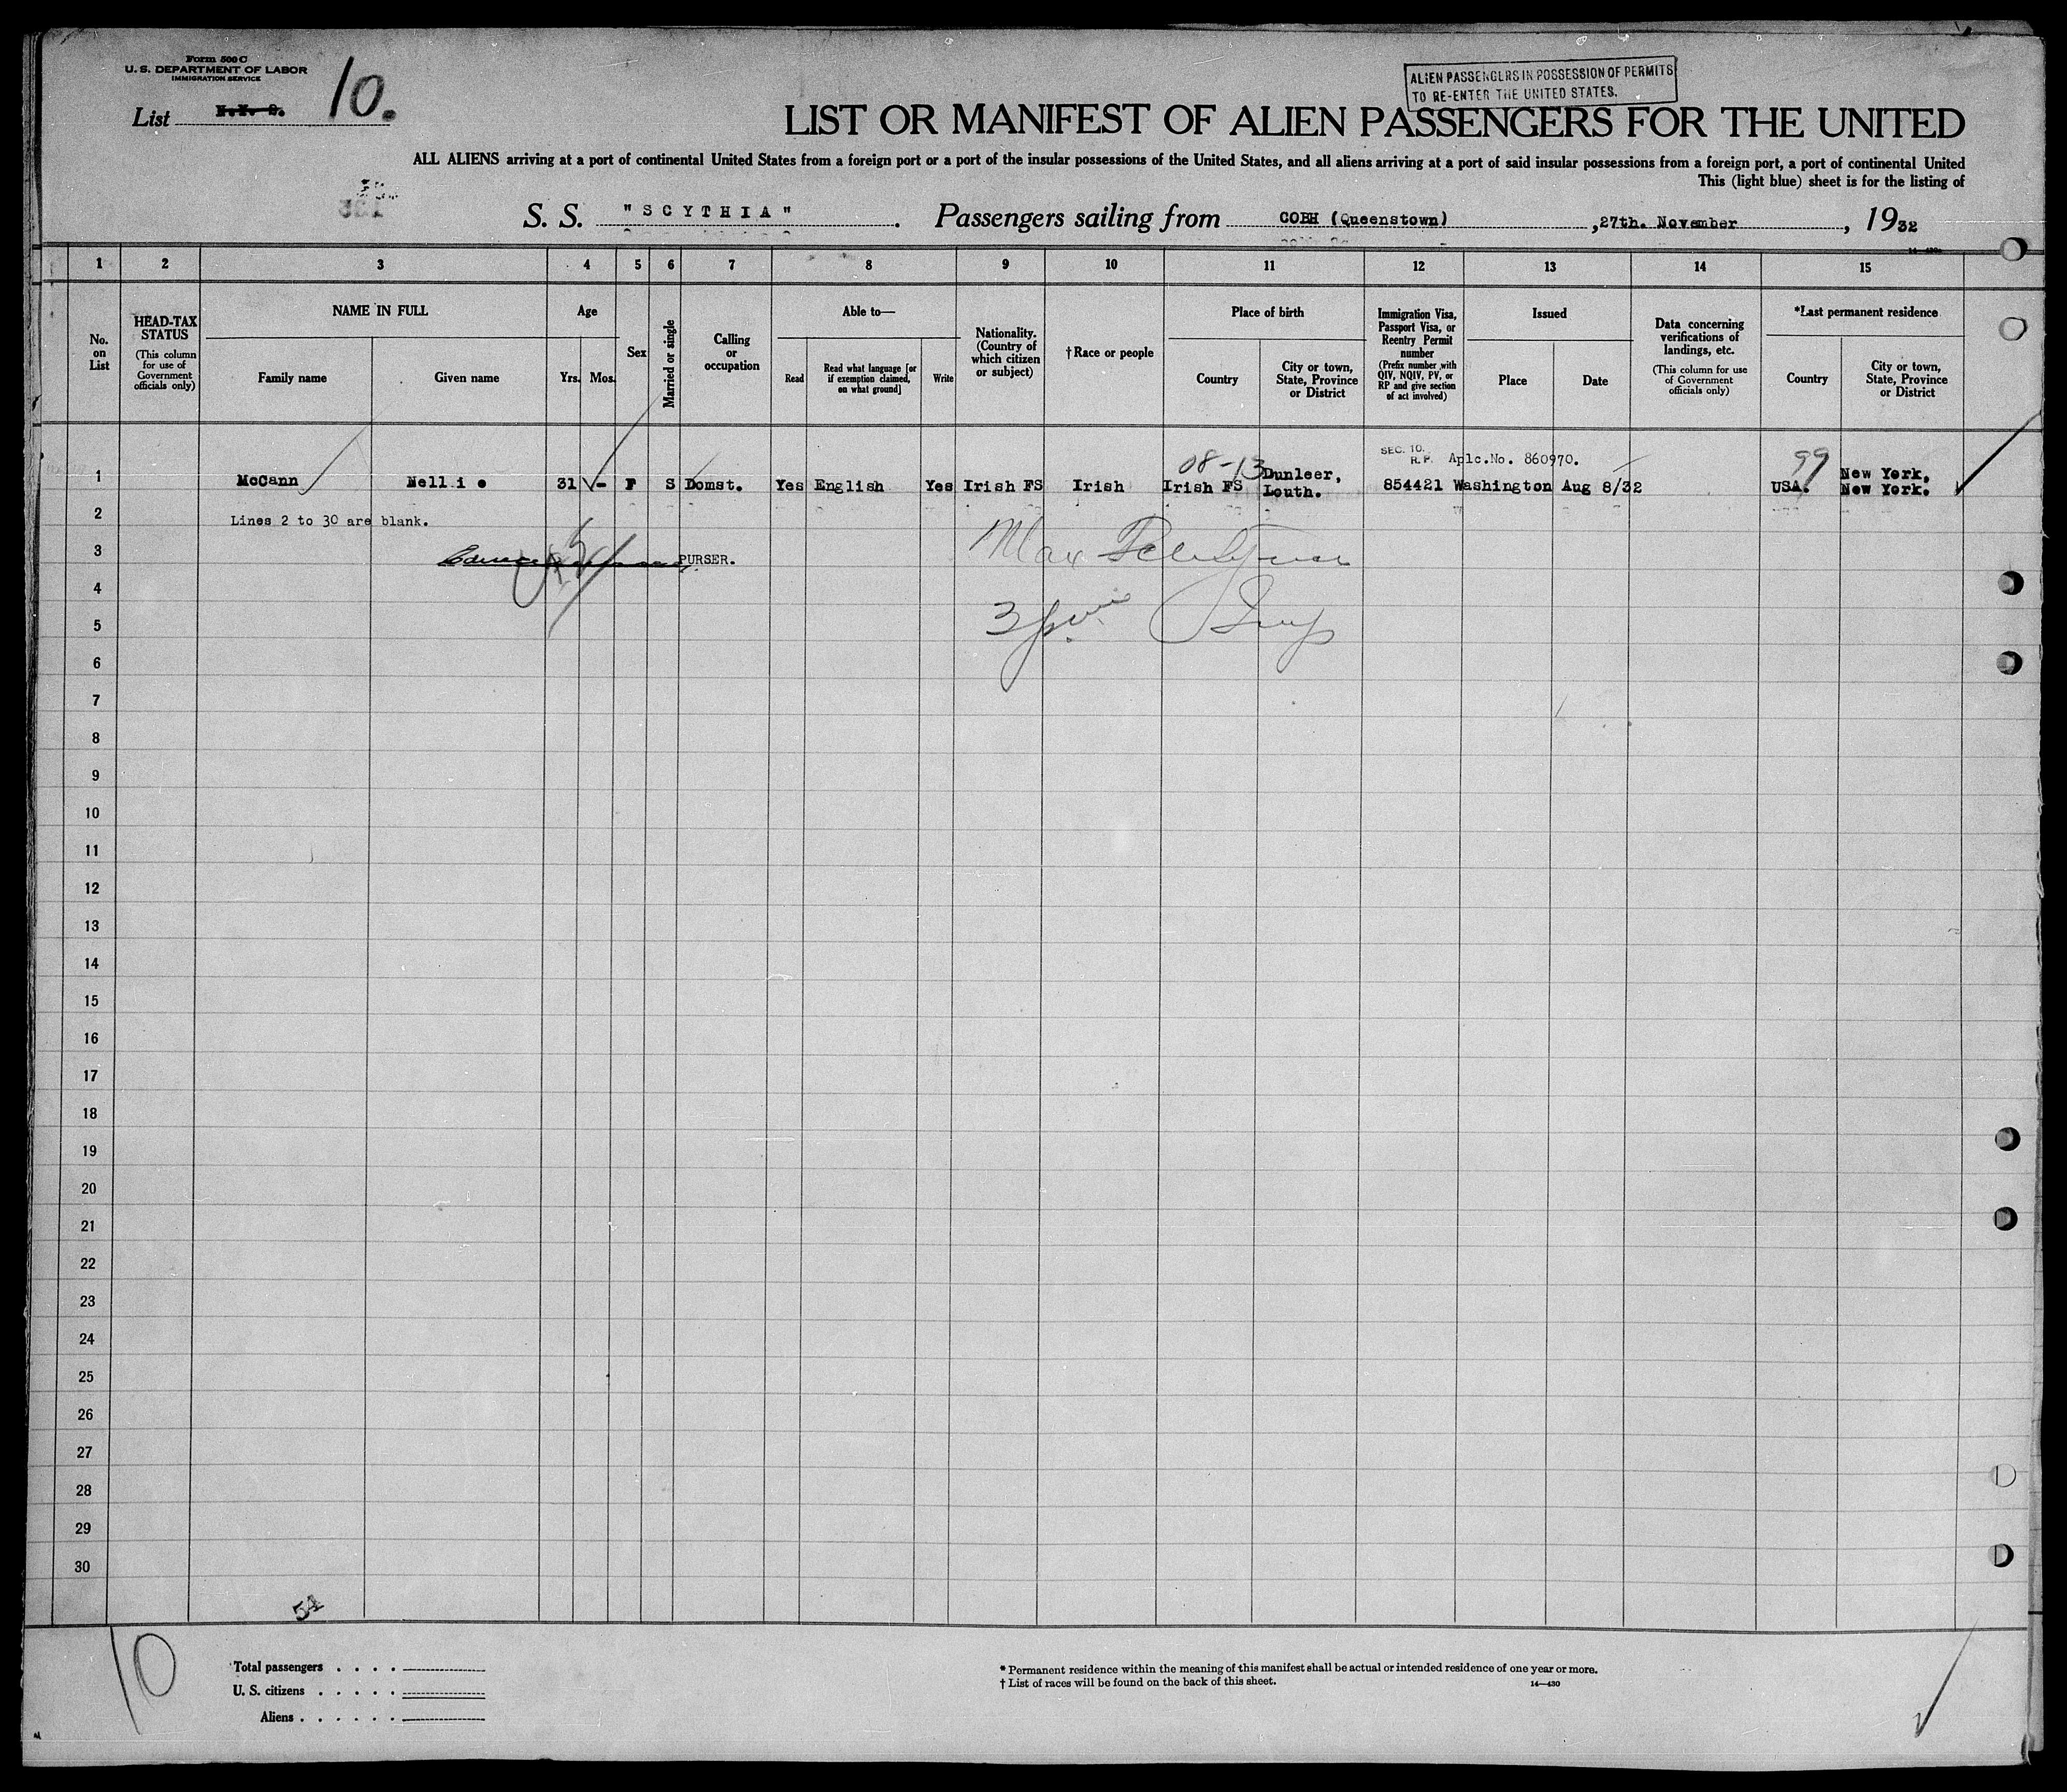 Form 500 C
U. S. DEPARTMENT OF LABOR
IMMIGRATION SERVICE
List 10.
ALIEN PASSENGERS IN POSSESSION OF PERMITS
TO RE-ENTER THE UNITED STATES.
LIST OR MANIFEST OF ALIEN PASSENGERS FOR THE UNITED
ALL ALIENS arriving at a port of continental United States from a foreign port or a port of the insular possessions of the United States, and all aliens arriving at a port of said insular possessions from a foreign port, a port of continental United
This (light blue) sheet is for the listing of
S. S. "SCYTHIA". Passengers sailing from COBH (Queenstown), 27th. November, 1932
1 2 3 4 5 6 7 8 9 10 11 12 13 14 15
No. on List
HEAD-TAX STATUS
(This column for use of Government officials only)
NAME IN FULL
Family name
Given name
Age
Yrs.
Mos.
Sex
Married or single
Calling or occupation
Able to—
Read
Read what language [or if exemption claimed, on what ground]
Write
Nationality. (Country of which citizen or subject)
†Race or people
Place of birth
Country
City or town, State, Province or District
Immigration Visa, Passport Visa, or Reentry Permit number
(Prefix number with QIV, NQIV, PV, or RP and give section of act involved)
Issued
Place
Date
Data concerning verifications of landings, etc.
(This column for use of Government officials only)
*Last permanent residence
Country
City or town, State, Province or District
08-13 SEC. 10. R.P. Aplc.No. 860970. 99
1 McCann Nellie 31 - F S Domst. Yes English Yes Irish FS Irish Irish FS Dunleer, Louth. 854421 Washington Aug 8/32 USA. New York, New York.
2 Lines 2 to 30 are blank.
3 PURSER. Max
4
5
6
7
8
9
10
11
12
13
14
15
16
17
18
19
20
21
22
23
24
25
26
27
28
29
30
54
10
Total passengers . . . .
U. S. citizens . . . . .
Aliens . . . . . .
* Permanent residence within the meaning of this manifest shall be actual or intended residence of one year or more.
† List of races will be found on the back of this sheet.
14—430